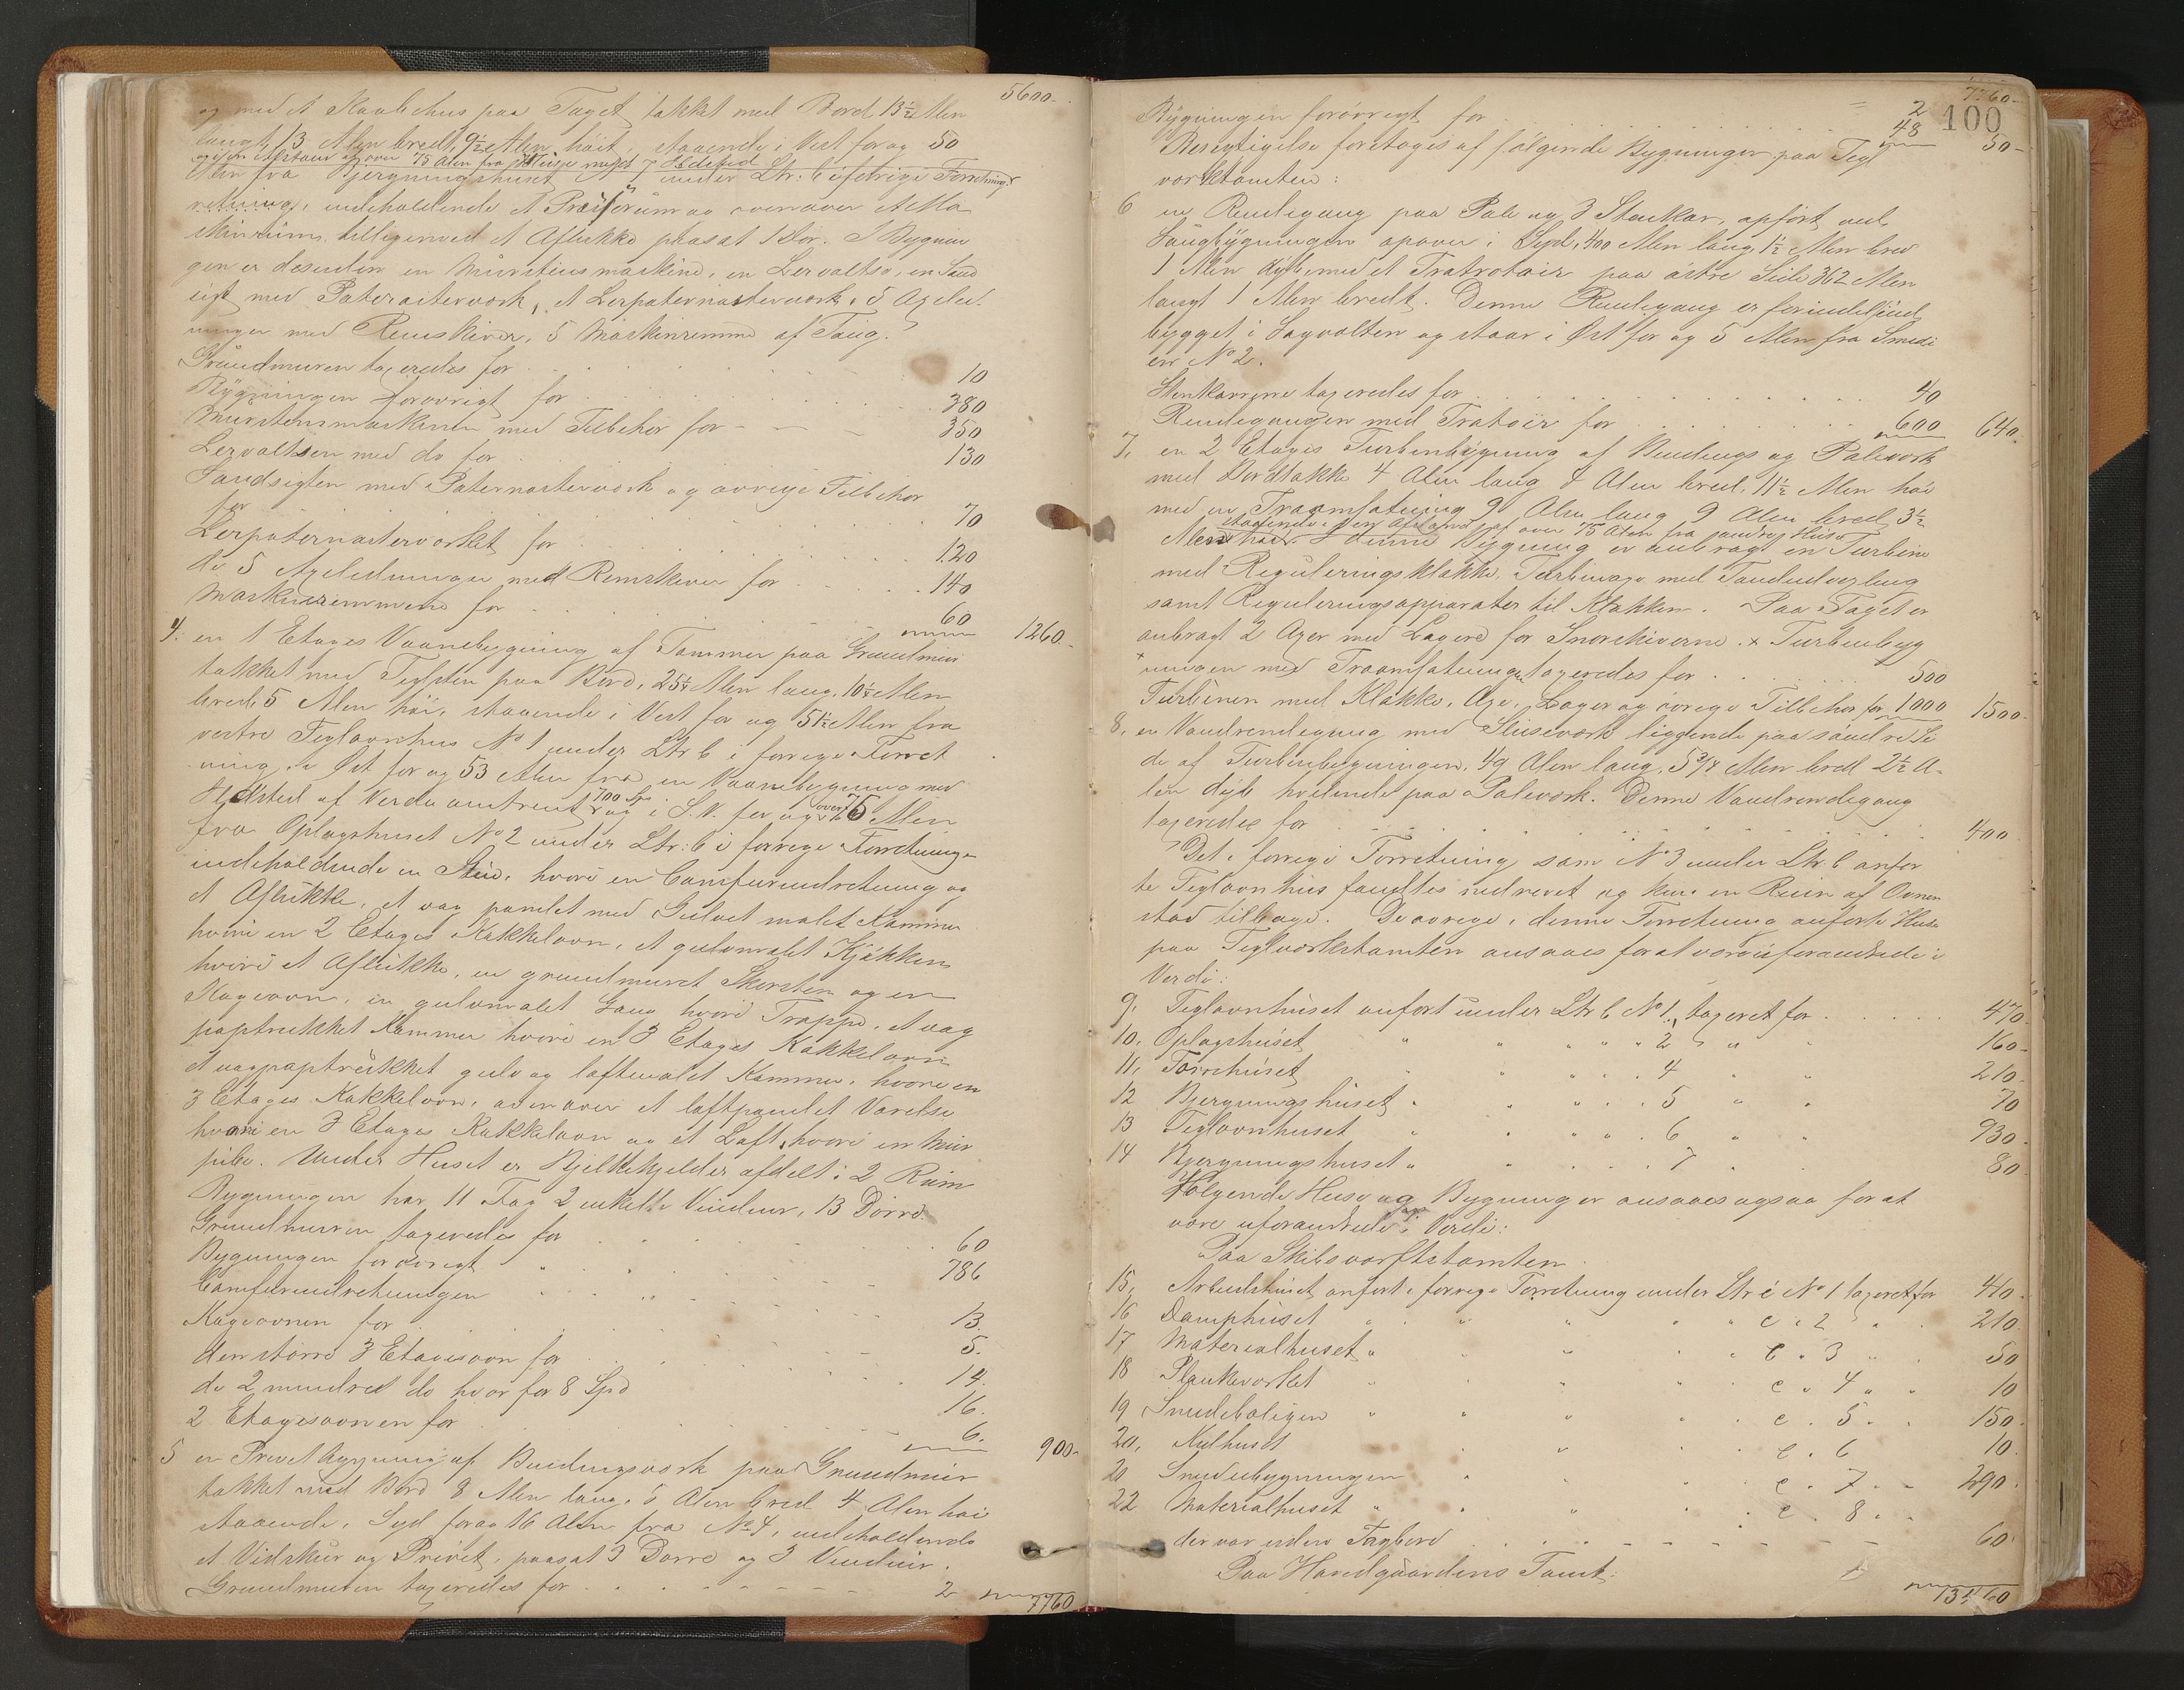 5600.
og med et Kaalehus paa Taget, takket med Bord 13½ Alen
langt, 13 Alen bredt, 9½ Alen høit, staaende i Vest for og 50
og i en Afstand af over 75 Alen fra Huse med Ildsted
Alen fra Bjergningshuset No 7 under Ltr. b i forrige Forretning
indeholdende et Præsserum og ovenover et Ma
skinrum, tillegemed et Aflukke paasat 1 Dør. I Bygnin
gen er desuden en Murstensmaskine, en Lervaltse, en Sand
sigt med Paternosterværk, et Lerpaternosterværk, 5 Axeled
ninger med Remskiver, 5 Maskinremme af Taug.
Grundmuren taxeredes for 10
Bygningen forøvrigt for 380
Murstensmaskinen med Tilbehør for 350
Lervaltsen med do for 130
Sandsigten med Paternosterværk og øvrige Tilbehør
for 70
Lerpaternosterværket for 120
de 5 Axeledninger med Remskiver for 140
Maskinremmene for 60 1260.
4. en 1 Etages Vaanebygning af Tømmer paa Grundmur
takket med Teglsten paa Bord, 25¼ Alen lang, 10½ Alen
bred, 5 Alen høi, staaende i Vest for og 51½ Alen fra
vestre Teglovnhus No 1 under Ltr b i forrige Forret
ning, i Øst for og 53 Alen fra en Vaanebygning med
Ildsted af Verdi omtrent 700 Spd og i S.V. for og over 75 Alen
fra Oplagshuset No 2 under Ltr: b i forrige Forretning
indeholdende en Stue, hvori en Comfurindretning og
et Aflukke, et væg panelet med Gulvet malet Kammer
hvori en 2 Etages Kakkelovn, et gulvmalet Kjøkken
hvori et Aflukke, en grundmuret Skorsten og en
Kageovn, en gulvmalet Gang hvori Trappe, et væg
paptrukket Kammer hvori en 3 Etages Kakkelovn
et vægpaptrukket gulv og loftmalet Kammer, hvori en
3 Etages Kakkelovn, ovenover et loftpanelet Værelse
hvori en 3 Etages Kakkelovn og et Loft, hvori en Mur
pibe. Under Huset er Bjelkekjelder afdelt i 2 Rum
Bygningen har 11 Fag 2 enkelte Vinduer, 13 Dørre.
Grundmuren taxeredes for 60
Bygningen forøvrigt " 786
Comfurindretningen
Kageovnen for 13.
den større 3 Etagesovn for 5.
de 2 mindre do hver for 8 Spd 14.
2 Etagesovnen for 16.
6. 900.
5 en Privetbygning af Bindingsværk paa Grundmur
takket med Bord 8 Alen lang, 5 Alen bred 4 Alen høi
staaende i Syd for og 16 Alen fra No 4, indeholdende
et Vidskur og Privet, paasat 3 Dørre og 3 Vinduer.
Grundmuren taxeredes for 2
7760
7760
100
Bygningen forøvrigt for 48 50
Besigtigelse foretoges af følgende Bygninger paa Tegl
værkstomten:
6 en Rendegang paa Pæle og 3 Stenkar, opført ved
Saugbygningen opover i Syd, 400 Alen lang, 1½ Alen bred
1 Alen dyb, med et Trætrotoir paa østre Side 362 Alen
langt 1 Alen bredt. Denne Rendegang er for indeland
bygget i Sagvolten og staar i Øst for og 5 Alen fra Smedi
en No 2.
Stenkarrene taxeredes for 40
Rendegangen med Trotoir for 600 640.
7. en 2 Etages Turbinbygning af Bindings og Pæleværk
med Bordtække 4 Alen lang 8 Alen bred, 11½ Alen høi
med en Træomfatning 9 Alen lang 9 Alen bred 3½
staaende i en Afstand af over 75 Alen fra andre Huse
Alen høi. I denne Bygning er anbragt en Turbine
med Reguleringsklokke, Turbinaxe med Tandudvexling
samt Reguleringsapparater til Klokken. Paa Taget er
anbragt 2 Axer med Lagere for Snorskiverne. × Turbinbyg
ningen med Træomfatningen taxeredes for 500
Turbinen med Klokke, Axe, Lager og øvrige Tilbehør for 1000 1500.
8. en Vandrendegang med Sluseværk liggende paa søndre Si
de af Turbinbygningen, 49 Alen lang, 5¾ Alen bred 2½ A-
len dyb hvilende paa Pæleværk. Denne Vandrendegang
taxeredes for 400.
Det i forrige Forretning som No 3 under Ltr. b anfør
te Teglovnhus fandtes nedrevet og kun en Ruin af Ovnen
stod tilbage. De øvrige i denne Forretning anførte Huse
paa Teglværkstomten ansaaes for at være uforandrede i
Verdi:
9. Teglovnhuset anført under Ltr b No 1, taxeret for 470.
10. Oplagshuset " " " 2 " " 160.
11. Tørrehuset " " " 4 " " 210.
12 Bjergningshuset " " " 5 " " 70
13 Teglovnhuset " " " 6 " " 930.
14 Bjergningshuset " " " 7 " 80
Følgende Huse og Bygninger ansaaes ogsaa for at
være uforandrede i Verdi:
Paa Skibsværftstomten.
15. Arbeidshuset anført i forrige Forretning under Ltr c No 1 taxeret for 40.
16 Damphuset " " " c " 2 " 210.
17 Materialhuset " " " c " 3 50
18 Plankeværket " " " c " 4 " " 10
19 Smedeboligen " " " c " 5 " " 150.
20. Kulhuset " " c " 6 10.
20 Smedebygningen " " c " 7 " " 290.
22 Materialhuset " " " c " 8 " "
der var uden Tagbord 60.
Paa Hovedgaardens Tomt:
13460